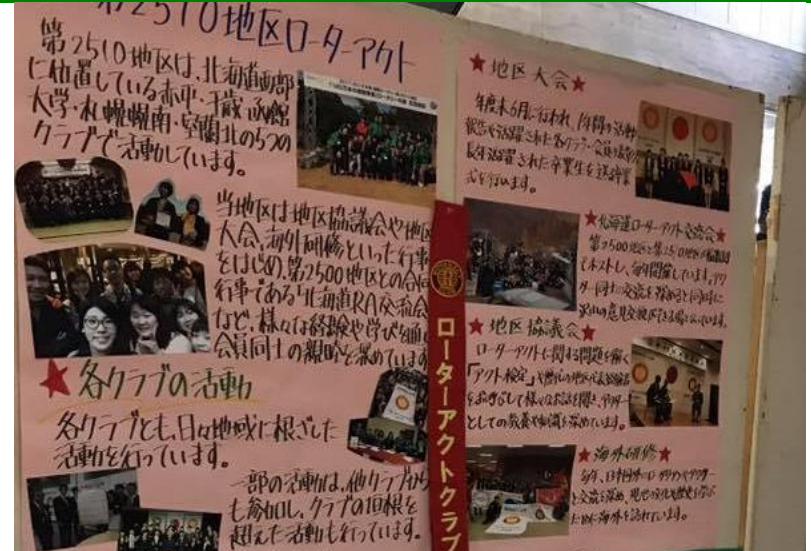 第2510地区ローターアクト
第2510地区は、北海道西部
に位置している赤平・千歳・函館
大学・札幌幌南・室蘭北の5つの
クラブで活動しています。
当地区は地区協議会や地区
大会、海外研修といった行事
をはじめ、第2500地区との合同
行事である北海道RA交流会
など、様々な経験や学びを通し
会員同士の親睦を深めています
★各クラブの活動
各クラブとも、日々地域に根ざした
活動を行っています。
一部の活動は、他クラブから
も参加し、クラブの垣根を
超えた活動も行っています。
ローターアクトクラブ
★地区大会★
年度末6月に行われ、1年間の活動
報告や活躍された各クラブ・会員の表彰
長年活躍された卒業生を送る卒業
式を行います。
★北海道ローターアクト交流会★
第2500地区と第2510地区が
ホストし、毎年開催しています。アク
ター同士の交流を深めると同時に
沢山の意見交換ができる場となっています。
★地区協議会★
ローターアクトに関する問題を解く
「アクト検定」や歴代の地区代表経験者
をお呼びして様々なお話を聞き、アクター
としての教養や知識を深めています。
★海外研修★
毎年、日本国外のロータリアンやアクター
と交流を深め、現地の文化や歴史を学ぶ
ために海外を訪れています。